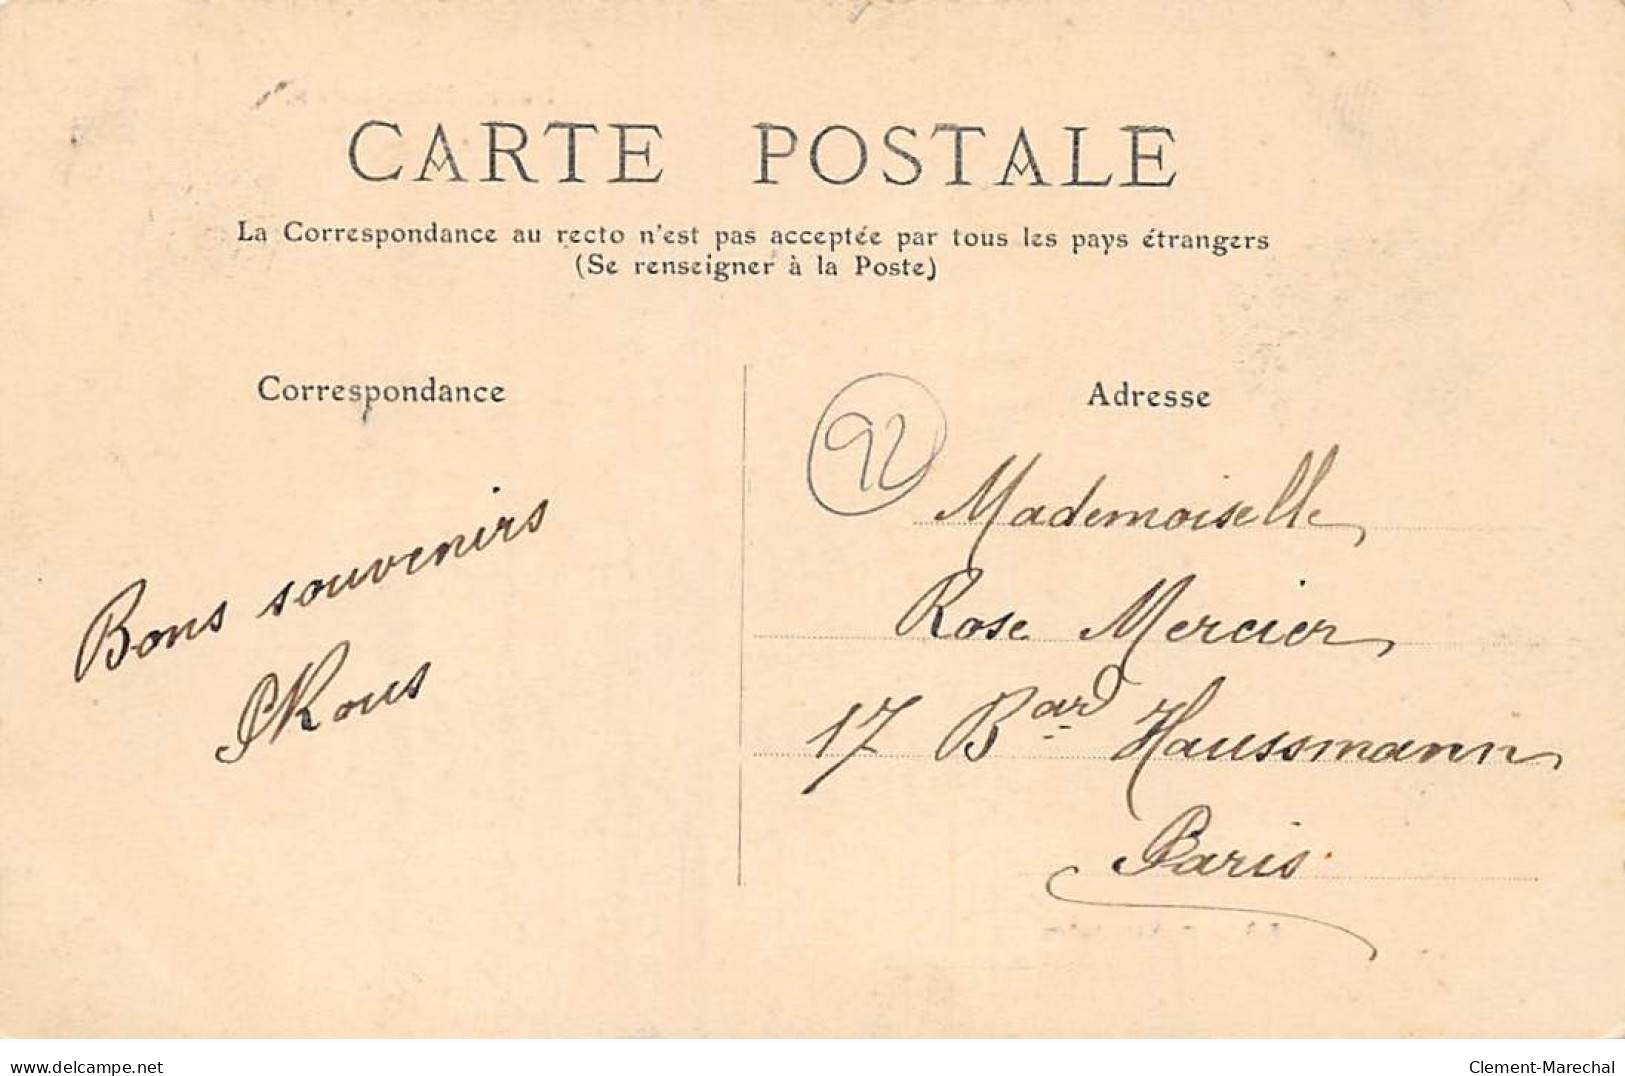 CARTE POSTALE
La Correspondance au recto n'est pas acceptée par tous les pays étrangers
(Se renseigner à la Poste)
Correspondance
Bons souvenirs
Adresse
92
Mademoiselle
Rose Mercier
17 Bard Haussmann
Paris
www.delcampe.net
Clement-Marechal